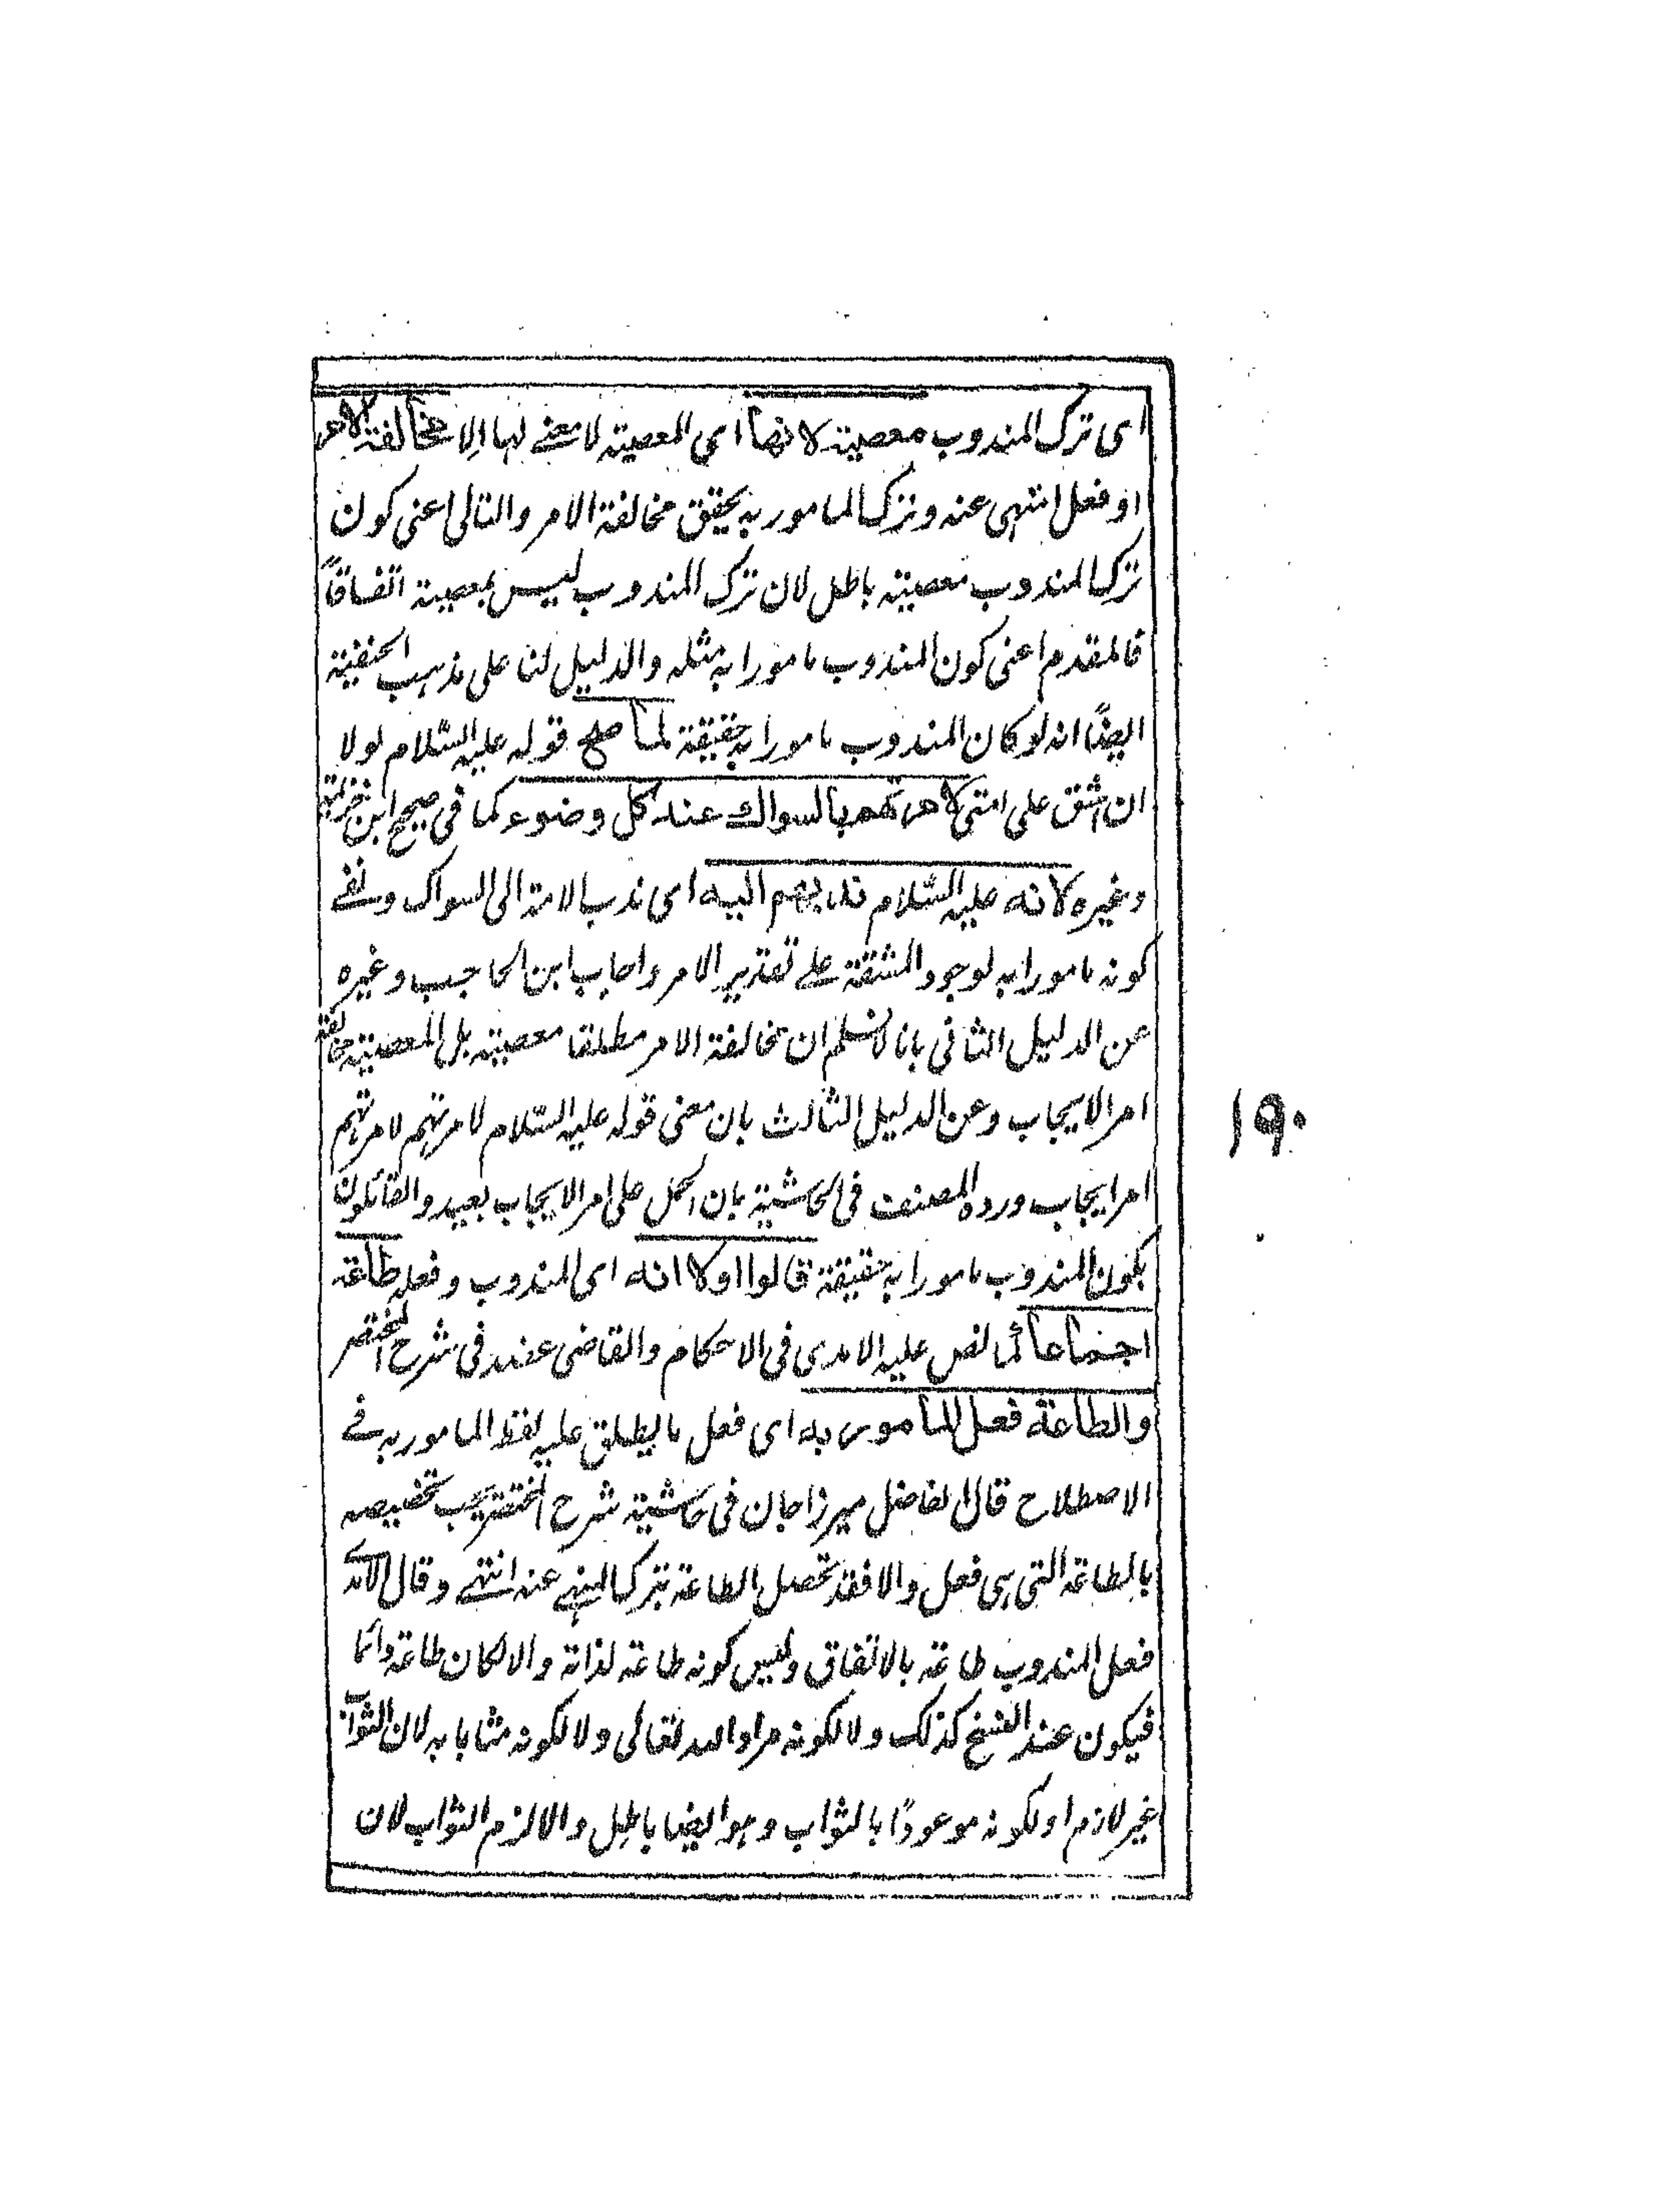 اى ترك المندوب معصية لانها اى المعصية لا معنے لها الا مخالفة الامر
او فعل انتهى عنه وترك المامور به يحقق مخالفة الامر والتالى اعنى كون
ترك المندوب معصية باطل لان ترك المندوب ليس بمعصية اتفاقاً
فالمقدم اعنى كون المندوب مامورا به مثله والدليل لنا على مذهب الحنفية
ايضًا انه لو كان المندوب مامورا به حقيقة لما صلح قوله عليه السّلام لولا
ان اشق على امتى لامرتهم بالسواك عند كل وضوء كما فى صحيح ابن خزيمة
وغيره لانه عليه السّلام ندبهم اليه اى ندب الامة الى السواك ونفے
كونه مامورا به لوجود المشقة علے تقدير الامر واجاب ابن الحاجب وغيره
عن الدليل الثانى بانا لا نسلم ان مخالفة الامر مطلقا معصية بل المعصية مخالفة
امر الايجاب وعن الدليل الثالث بان معنى قوله عليه السّلام لامرتهم لامرتهم
امر ايجاب ورده المصنف فى الحاشية بان الحمل على امر الايجاب بعيد والقائلون
بكون المندوب مامورا به حقيقة قالوا اولا انه اى المندوب وفعله طاعة
اجماعا كما نص عليه الامدى فى الاحكام والقاضى عضد فى شرح المختصر
والطاعة فعل المامور به اى فعل ما يطلق عليه لفظ المامور به فے
الاصطلاح قال الفاضل ميرزاجان فى حاشية شرح المختصر يجب تخصيصه
بالطاعة التى هى فعل والا فقد تحصل الطاعة بترك المنهے عنه انتهے وقال الآمدے
فعل المندوب طاعة بالاتفاق وليس كونه طاعة لذاته والا لكان طاعة دائما
فيكون عند النسخ كذلك ولا لكونه مراد الله تعالى ولا لكونه مثابا به لان الثواب
غير لازم او لكونه موعودًا بالثواب وهو ايضا باطل والا لزم الثواب لان
١٩٠